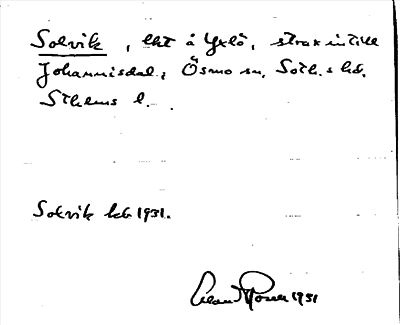 Solvik, lht å Yxlö, strax intill
Johannisdal, Ösmo sn, Soth.s hd.
Sthlms l.
Solvik kb 1931.
1931